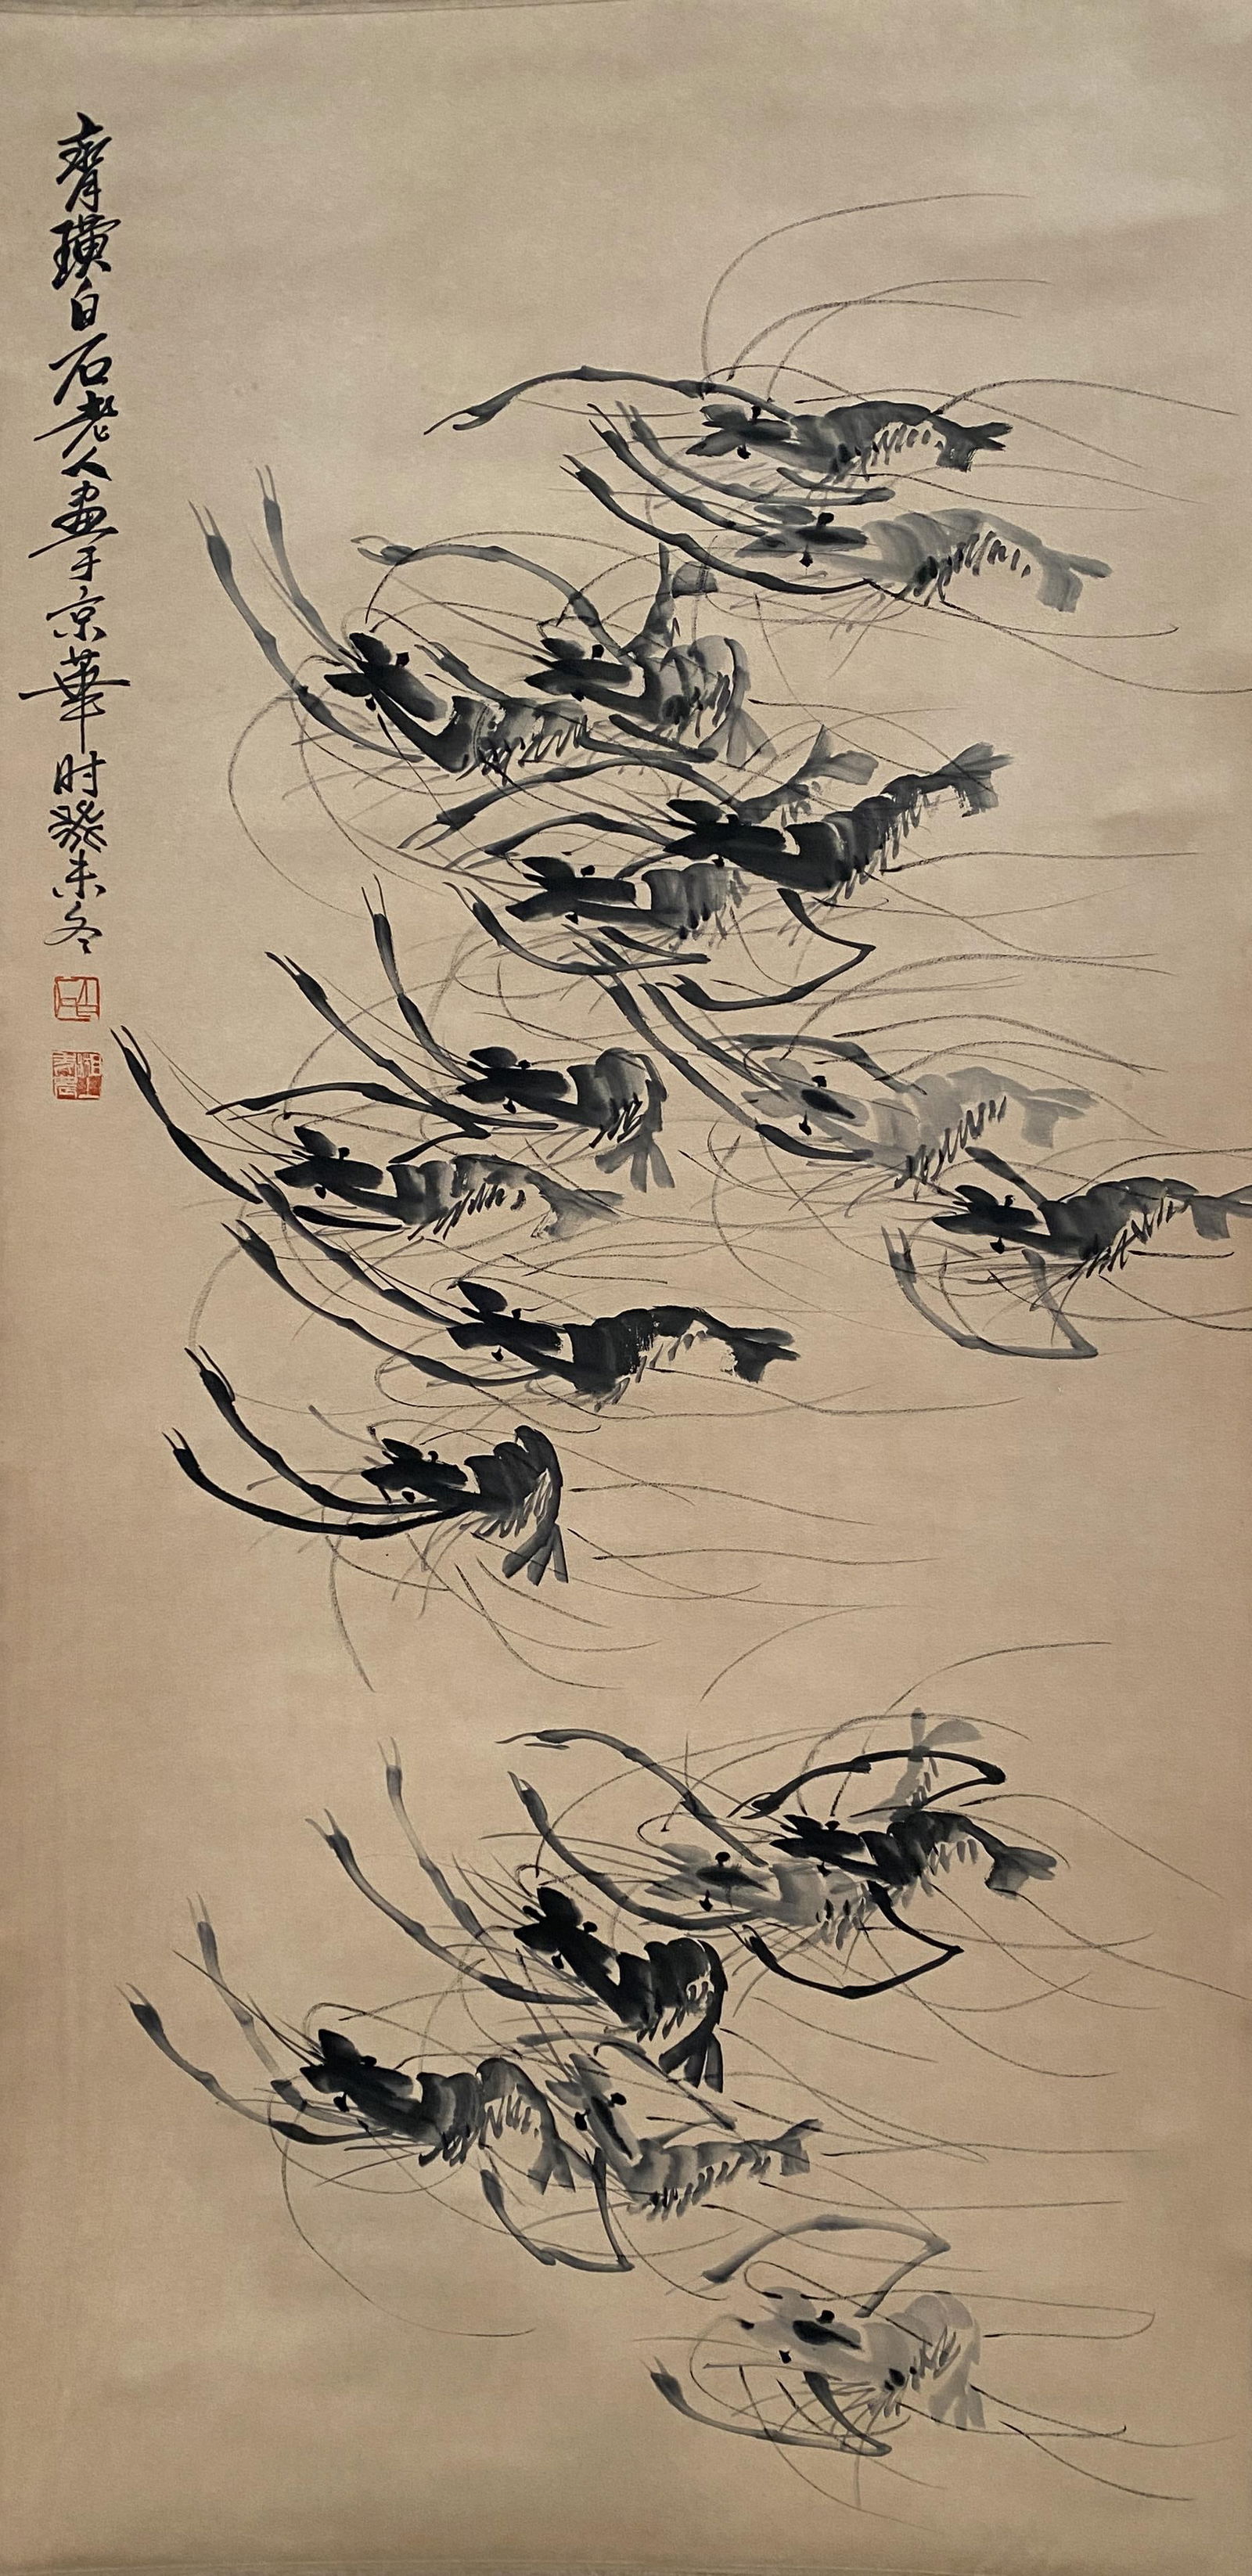 齊璜白石老人畫于京華时癸未冬